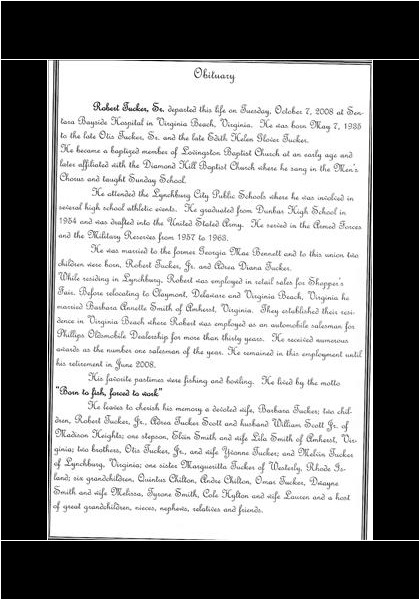 Obituary
Robert Tucker, Sr. departed this life on Tuesday, October 7, 2008 at Sen-
tara Bayside Hospital in Virginia Beach, Virginia. He was born May 7, 1935
to the late Otis Tucker, Sr. and the late Edith Helen Glover Tucker.
He became a baptized member of Lovingston Baptist Church at an early age and
later affiliated with the Diamond Hill Baptist Church where he sang in the Men's
Chorus and taught Sunday School.
He attended the Lynchburg City Public Schools where he was involved in
several high school athletic events. He graduated from Dunbar High School in
1954 and was drafted into the United Stated Army. He served in the Armed Forces
and the Military Reserves from 1957 to 1963.
He was married to the former Georgia Mae Bennett and to this union two
children were born, Robert Tucker, Jr. and Adrea Diana Tucker.
While residing in Lynchburg, Robert was employed in retail sales for Shopper's
Fair. Before relocating to Claymont, Delaware and Virginia Beach, Virginia he
married Barbara Annette Smith of Amherst, Virginia. They established their resi-
dence in Virginia Beach where Robert was employed as an automobile salesman for
Phillips Oldsmobile Dealership for more than thirty years. He received numerous
awards as the number one salesman of the year. He remained in this employment until
his retirement in June 2008.
His favorite pastimes were fishing and bowling. He lived by the motto
"Born to fish, forced to work"
He leaves to cherish his memory a devoted wife, Barbara Tucker; two chil-
dren, Robert Tucker, Jr., Adrea Tucker Scott and husband William Scott Jr. of
Madison Heights; one stepson, Elvin Smith and wife Lila Smith of Amherst, Vir-
ginia; two brothers, Otis Tucker, Jr., and wife Yvonne Tucker; and Melvin Tucker
of Lynchburg, Virginia; one sister Margueritta Tucker of Westerly, Rhode Is-
land; six grandchildren, Quintus Chilton, Andre Chilton, Omar Tucker, Dwayne
Smith and wife Melissa, Tyrone Smith, Cole Hylton and wife Lauren and a host
of great grandchildren, nieces, nephews, relatives and friends.